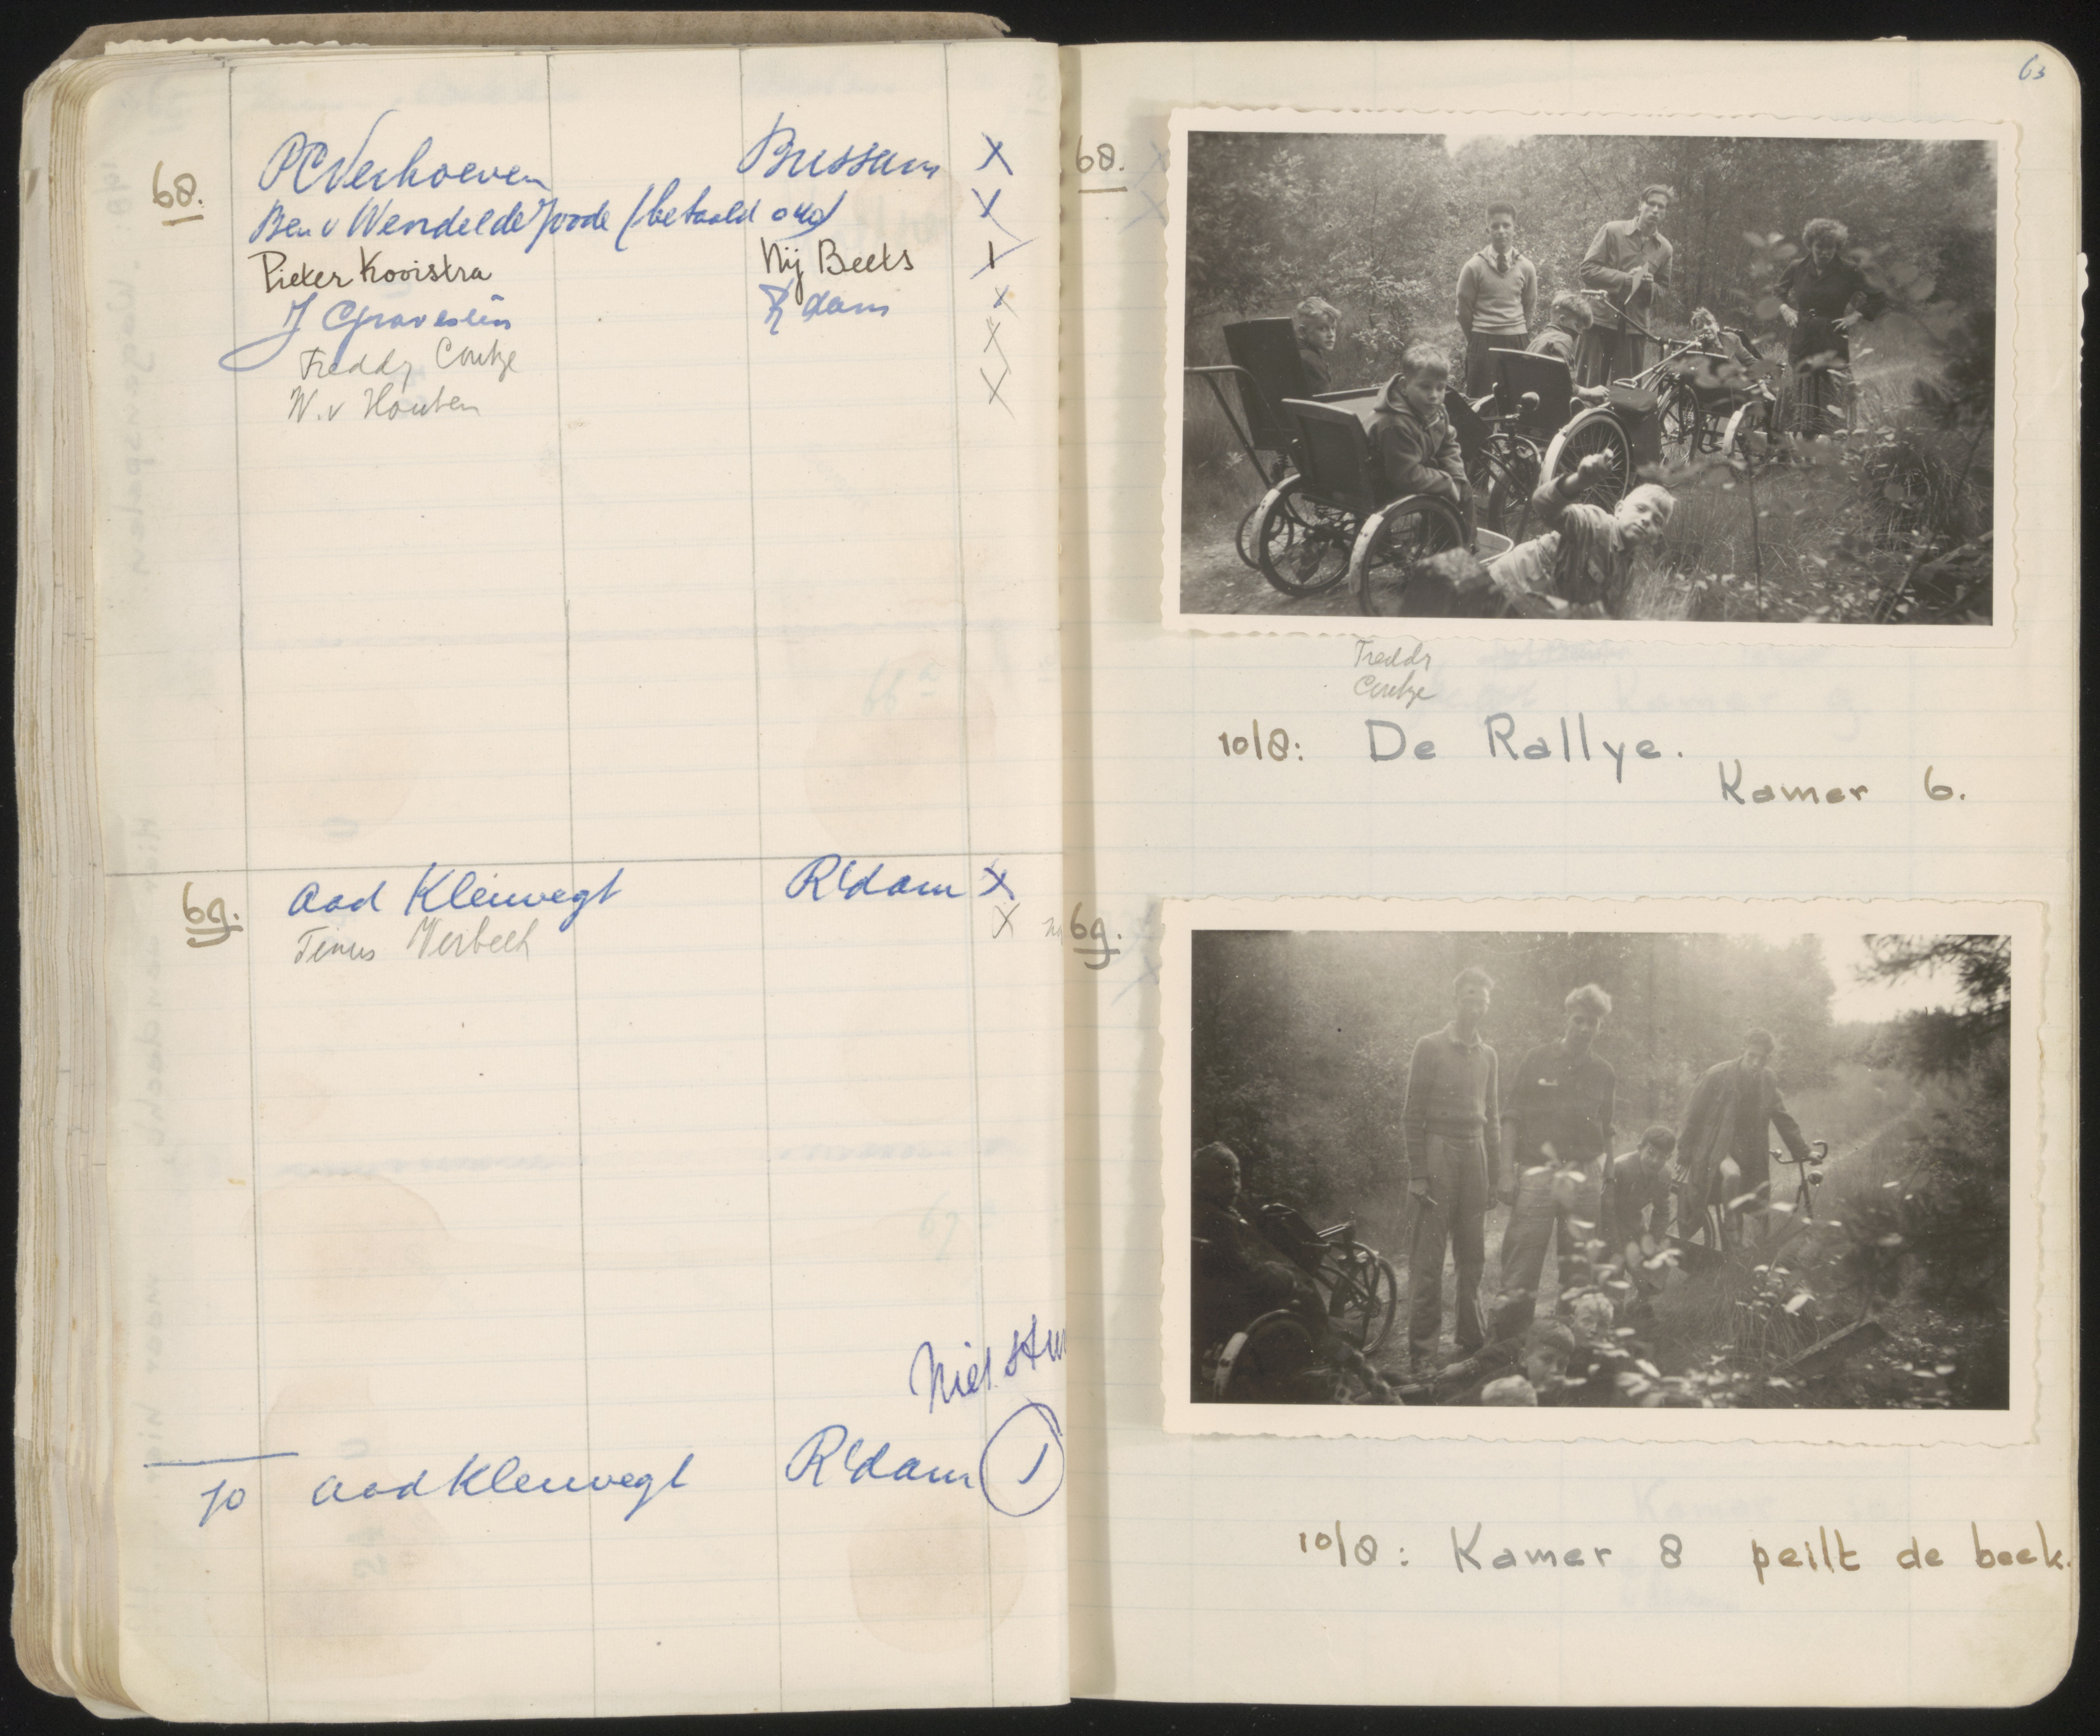 68. P C Verhoeven Bussum X
Ben v Wendel de Joode (betaald X
Pieter Kooistra Nij Beets 1
J Gravestein R'dam X
Freddy X
W. v Houten X
69. Aad Kleiwegt R'dam X
Tinus Verbeek X
Niet
70 Aad Kleiwegt R'dam 1
63
68.
Freddy
10/8: De Rallye.
Kamer 6.
69.
10/8: Kamer 8 peilt de beek.